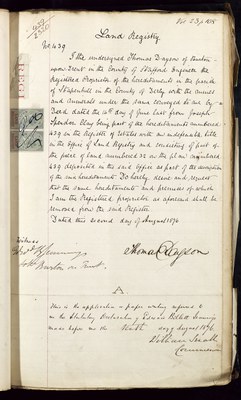 Land Registry
No. 439
I the undersigned Thomas Dayson of Burton
upon Trent in the County of Stafford Engineer the
Registered Proprietor of the hereditaments in the parish
of Stapenhill in the County of Derby with the mines
and minerals under the same conveyed to me by a
Deed dated the 10th day of June last from Joseph
Spender Clay being part of the hereditaments numbered
439 on the Register of Estates with an indefeasible title
in the Office of Land Registry and consisting of part of
the piece of Land numbered on the plan numbered
439 deposited in the said office as part of the description
of the said hereditaments Do hereby desire and request
that the said hereditaments and premises of which
I am the Registered proprietor as aforesaid shall be
removed from the said Register
Dated this second day of August 1876
Witness
Burton on Trent
Thomas Dayson
A.
This is the application or paper writing referred to
in the Statutory Declaration of Edwin
made before me the day of August 1876